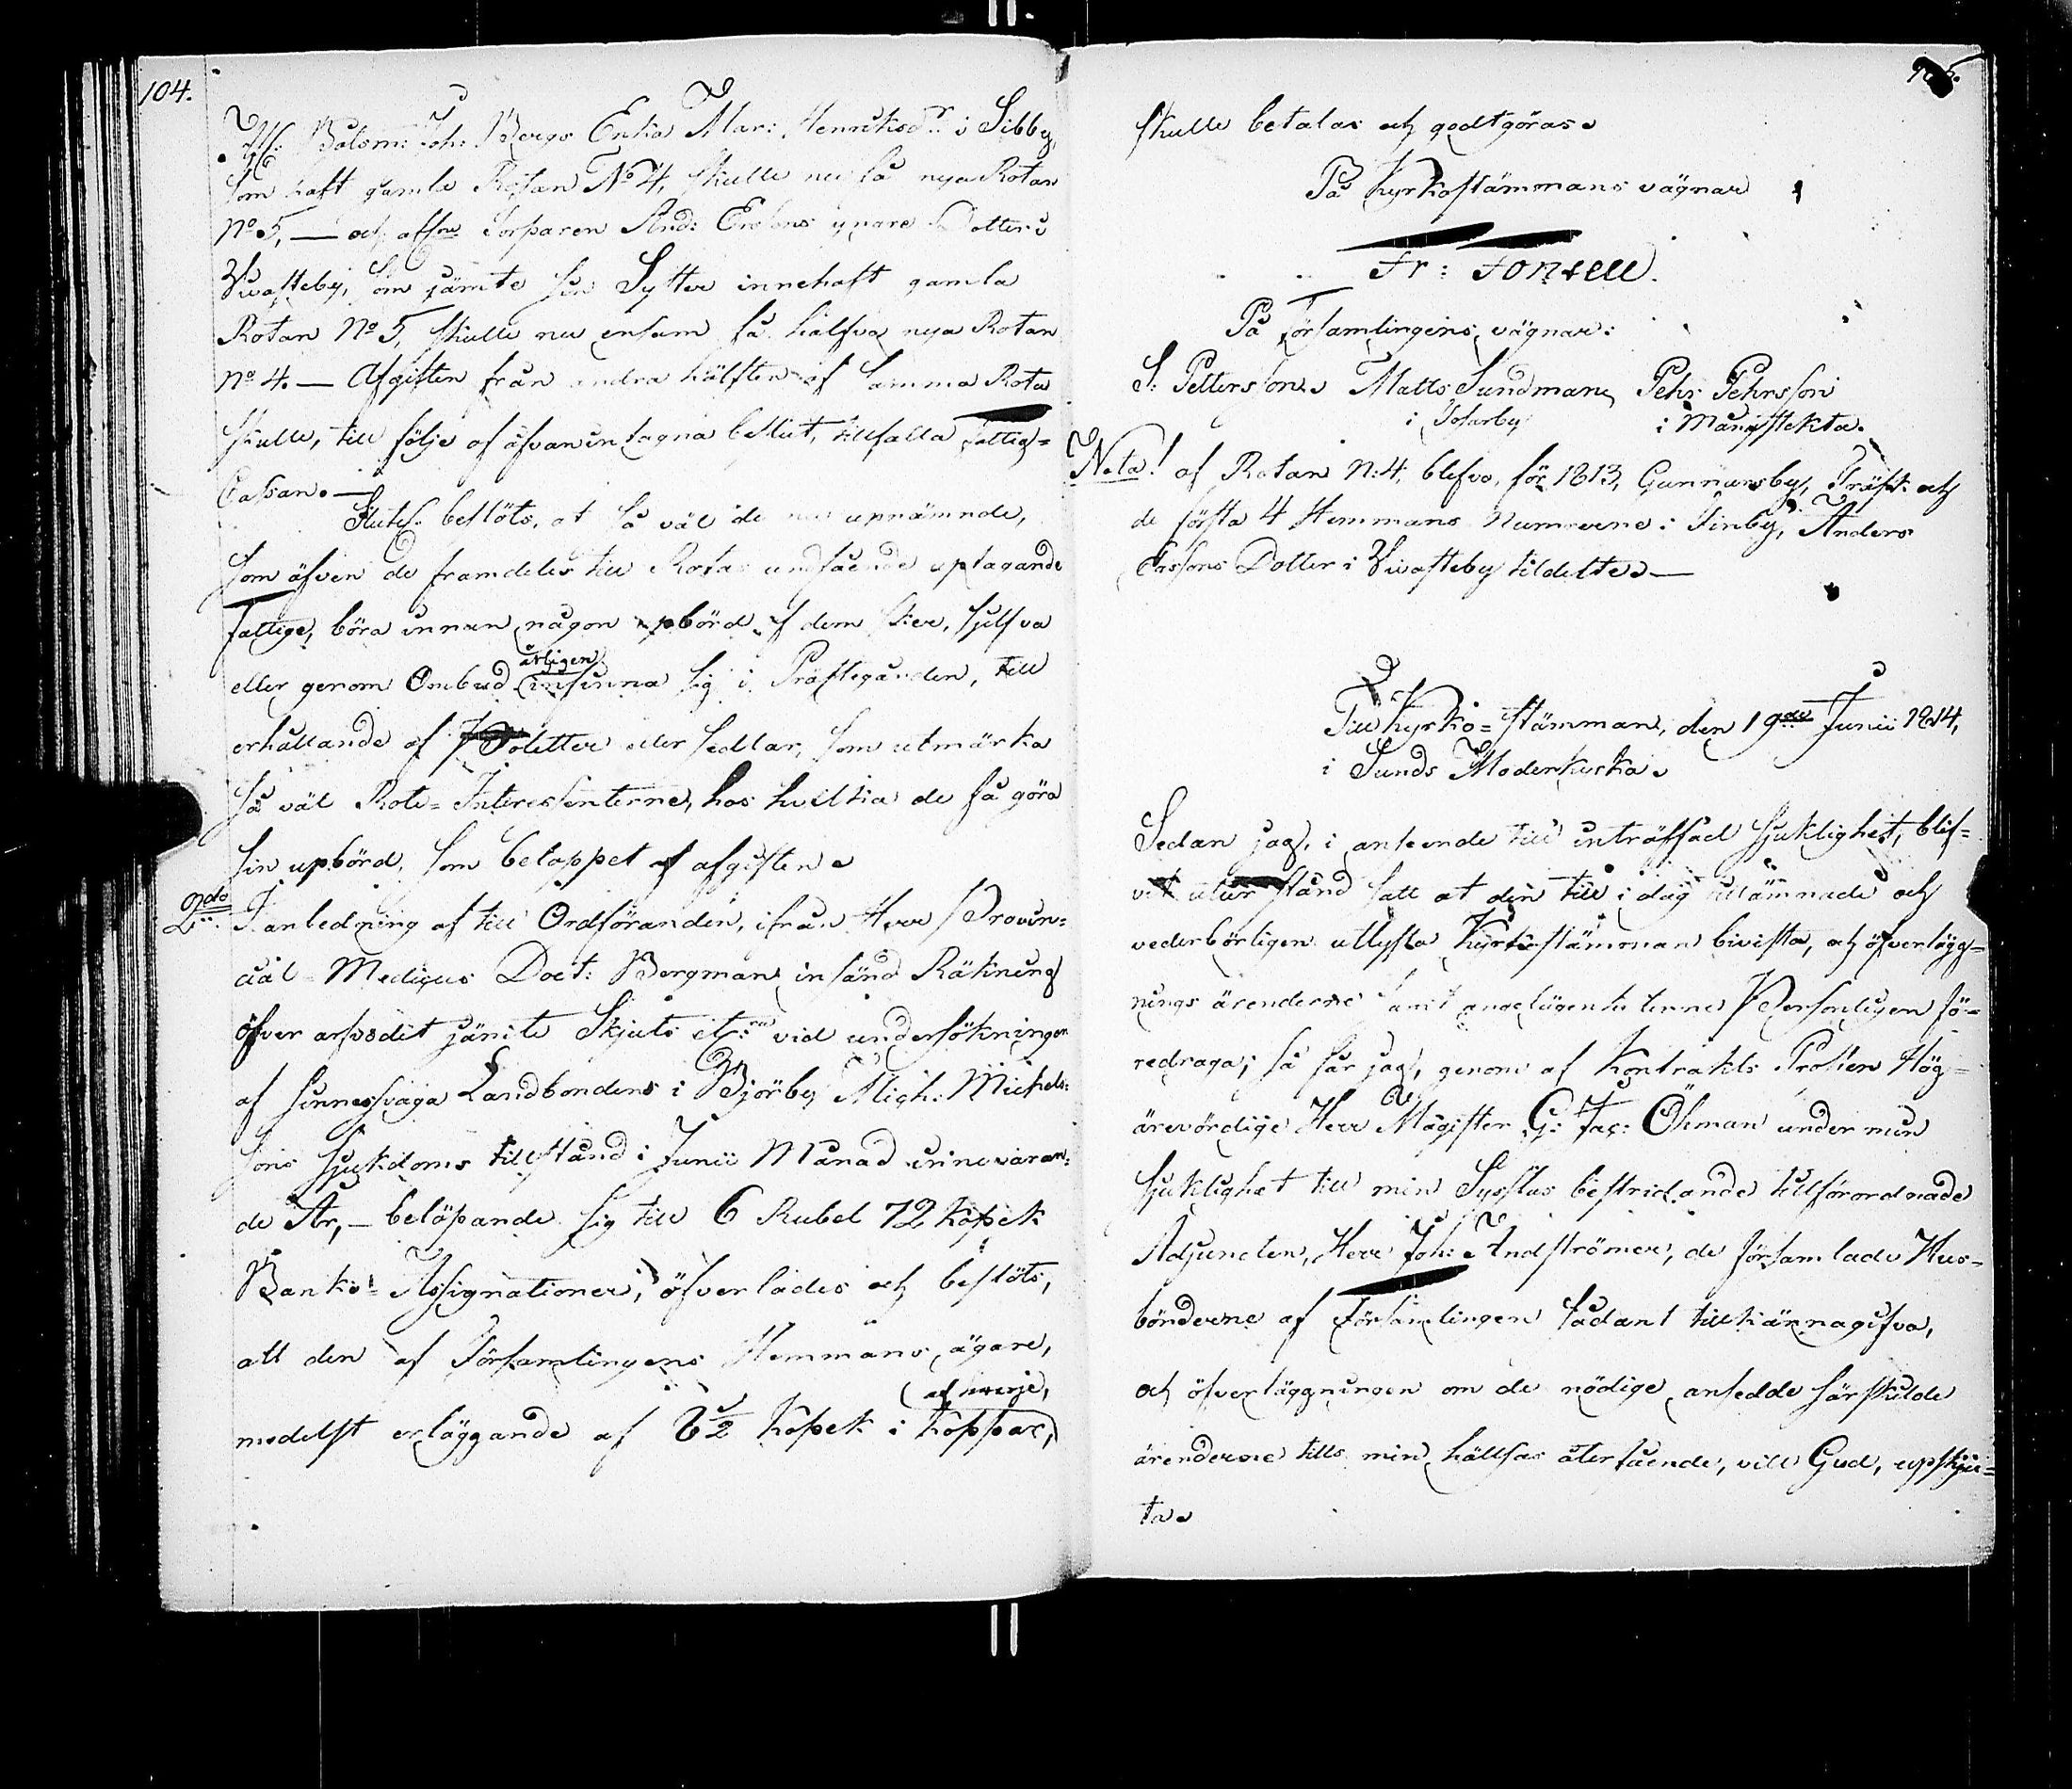 104.
Afl: Båtsm: Joh: Bergs Enka Mar: Henricksdr i Sibby,
som haft gamla Rotan No 4, skulle nu få nya Rotan
No 5, — och afl:ne Torparen And: Ersons yngre Dotter i
Swasteby, som jämte sin Syster innehaft gamla
Rotan No 5, skulle nu ensam få halfva nya Rotan
No 4. — Afgiften från andra hälften af samma Rota
skulle, till följe af ofvan intagna beslut, tillfalla Fattig=
Cassan. —
Slutel. beslöts, at så väl de nu upnämnde,
som äfven de framdeles till Rotas undfående uptagande
Fattige, böra innan någon upbörd af dem sker, sjelfva
eller genom Ombud årligen infinna sig i Prästegården, till
erhållande af Poletter eller sedlar, som utmärka
så väl Rote=Interessenterne, hos hvilka de få göra
sin upbörd, som beloppet af afgiften.
2do I anledning af till Ordföranden, ifrån Herr Provin=
cial-Medicus Doct: Bergman insänd Räkning
öfver arfvodit jämte Skjuts etc: vid undersökningen
af sinnessvaga Landbondens i Björby Mich: Michels=
sons sjukdoms tillstånd i Junii Månad innevaran=
de År, — belöpande sig till 6 Rubel 72 Kopek
Banko=Assignationer, öfverlades och beslöts,
att den af Församlingens Hemmans ägare,
medelst erläggande af 6 1/2 Kopek i Koppar, af hvarje,
skulle betalas och godtgöras.
På Kyrkostämmans vägnar
Fr: Fontell.
På Församlingens vägnar:
S: Pettersson. Matts Sundman, Pehr Pehrsson
i Tosarby i Mångstekta.
Nota! af Rotan N:4, blefvo, för 1813, Gunnarsby, Träsk och
de första 4 Hemmans Numrerne i Finby, Anders
Ersons Dotter i Swasteby tildelte. —
Till Kyrko=stämman, den 19de Junii 1814,
i Sunds Moderkyrka.
Sedan jag, i anseende till inträffad sjuklighet, blif=
vit utur stånd satt at den till i dag utlämnade och
vederbörligen utlysta Kyrkostämman bivista, och öfverlägg=
nings ärenderne samt angelägenheterne Personligen fö=
redraga; så får jag, genom af Kontrakts Prosten Hög=
ärevördige Herr Magister G: Jac: Öhman under min
sjuklighet till min Sysslas bestridande tillförordnade
Adjuncten, Herr Joh: Andströmer, de församlade Hus=
bönderne af Församlingen sådant tillkännagifva,
och öfverläggningen om de nödige ansedde särskilde
ärenderne tills min hälsas återfående, vill Gud, upskju=
ta.